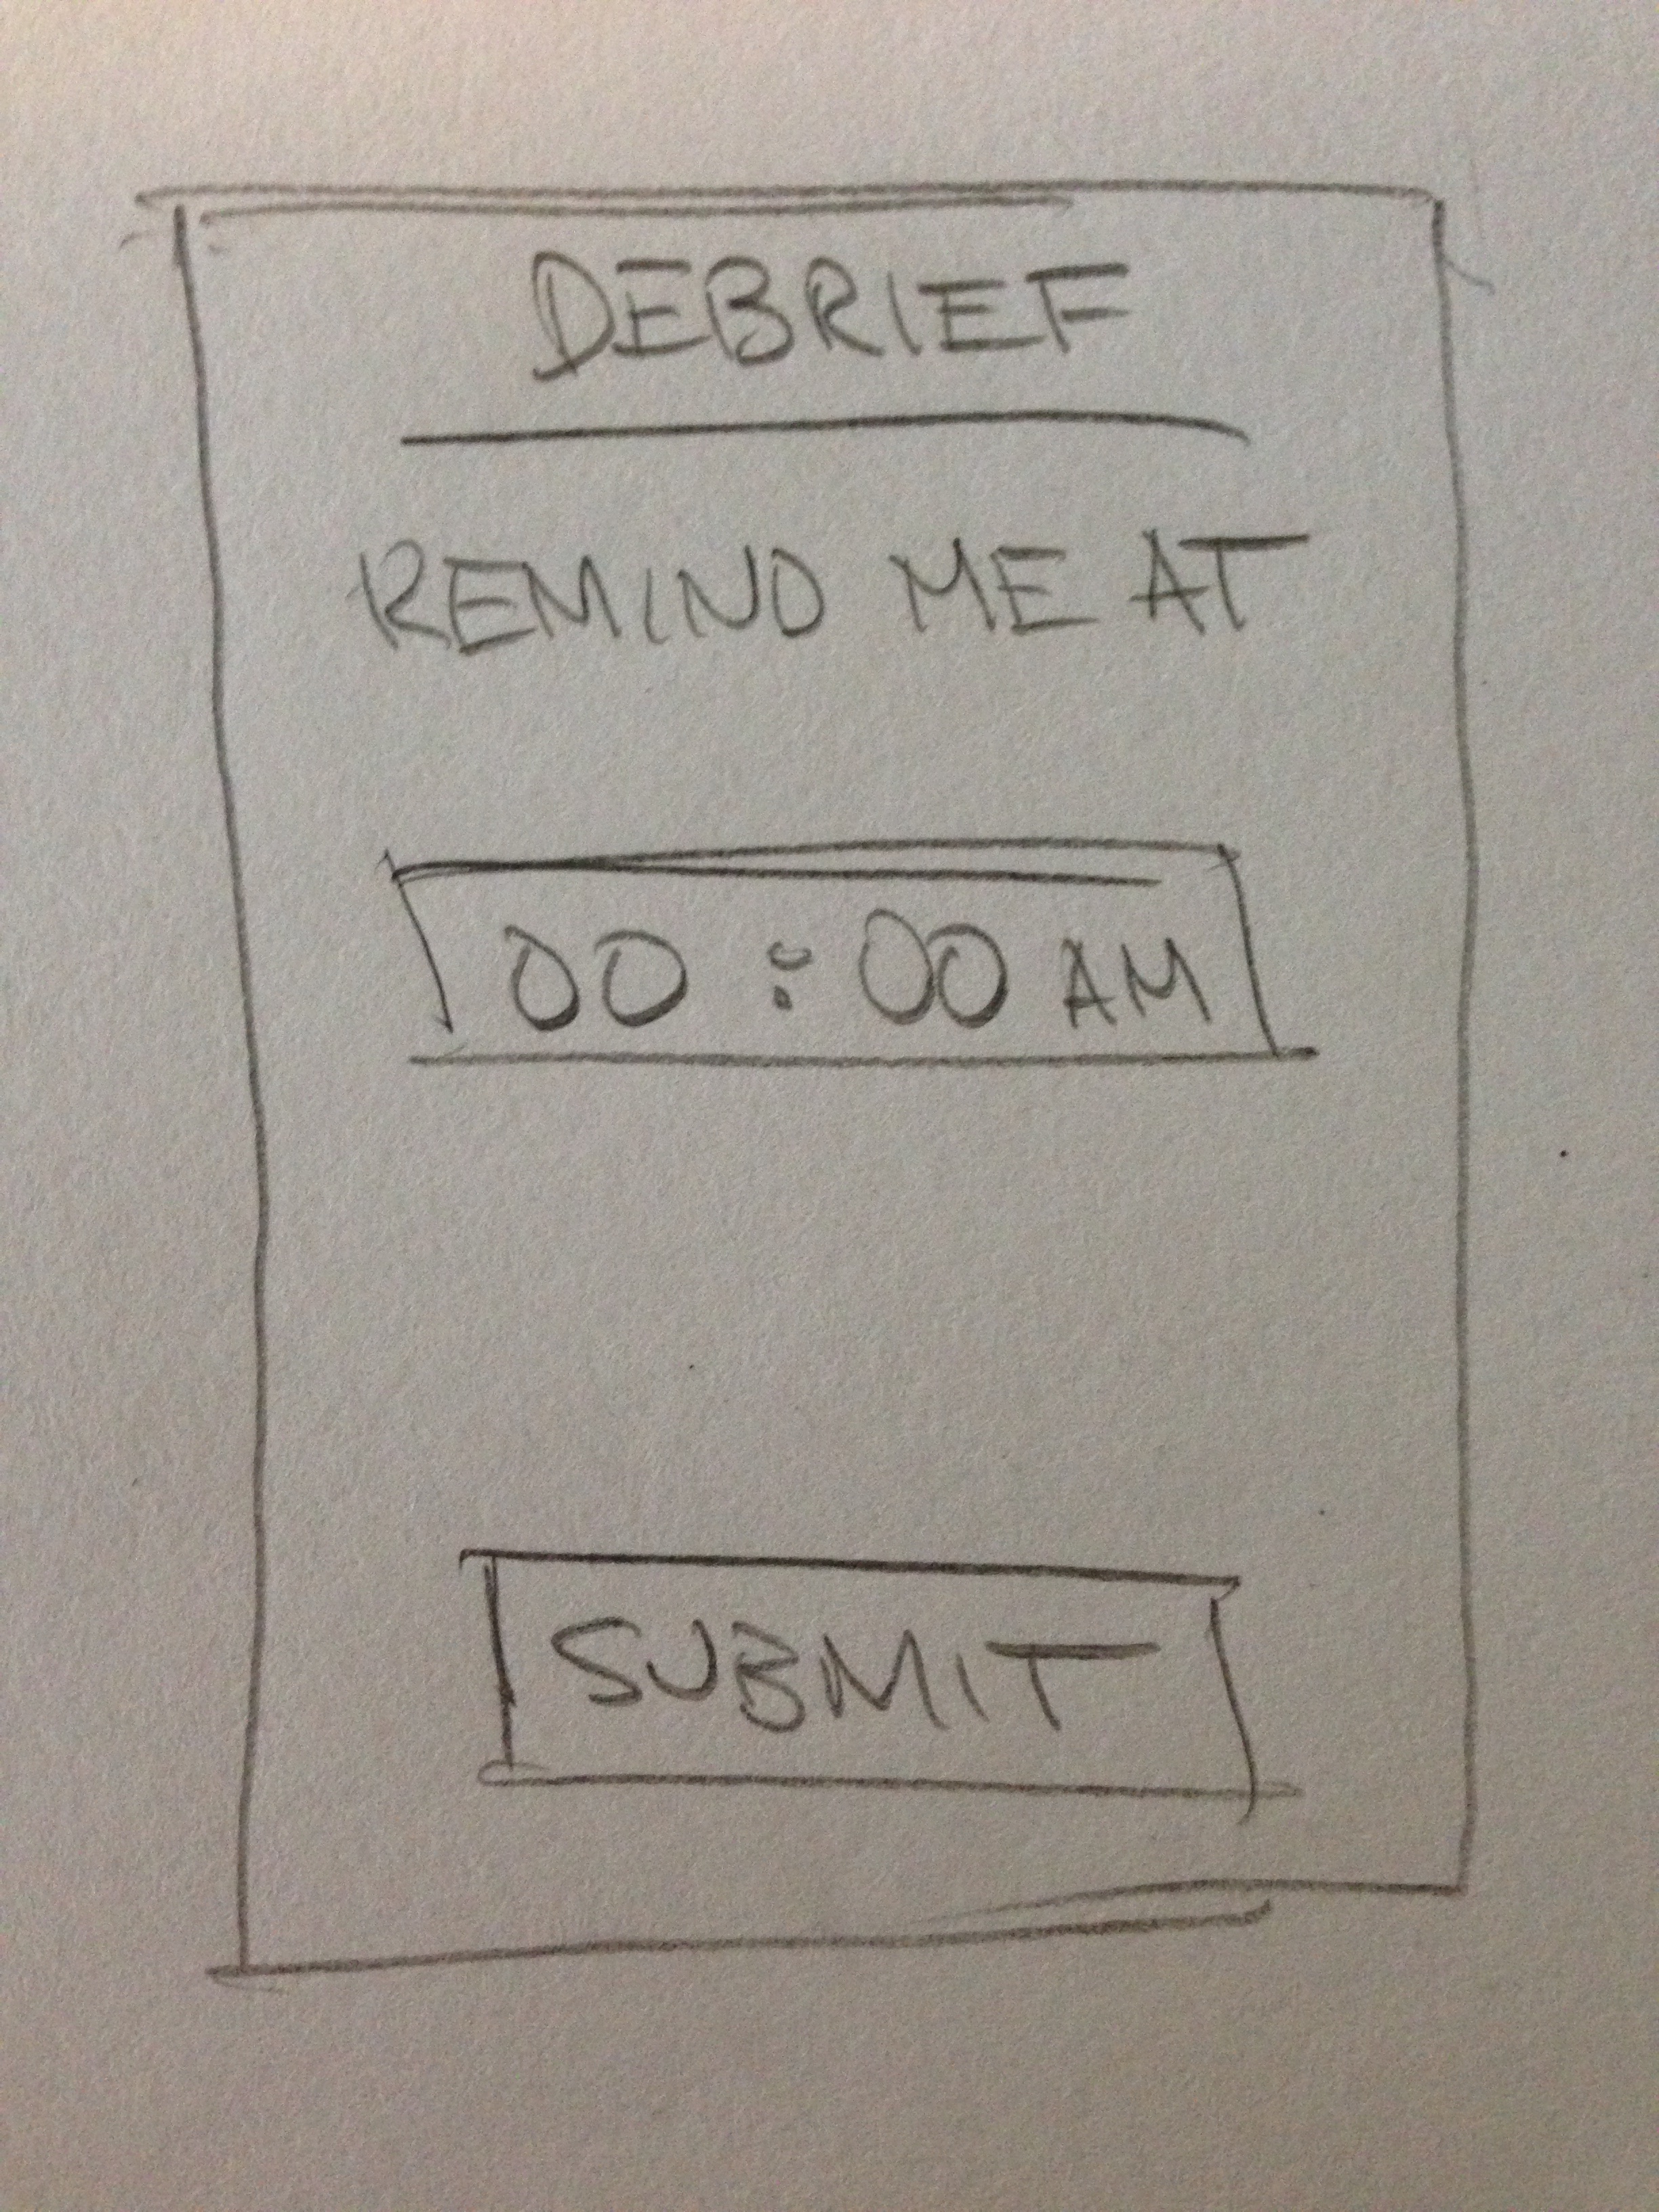 DEBRIEF
REMIND ME AT
00 : 00 AM
SUBMIT